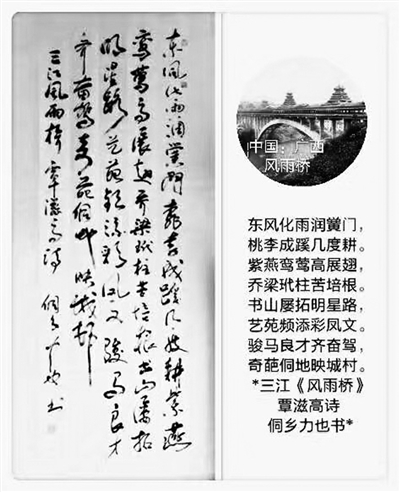 东风化雨润黉门桃李成蹊几度耕紫燕
鸾莺高展翅乔梁玳柱苦培根书山屡拓
明星路艺苑频添彩凤文骏马良才
齐奋驾奇葩侗地映城村
三江风雨桥 覃滋高诗 侗乡力也书
中国：广西
风雨桥
东风化雨润黉门，
桃李成蹊几度耕。
紫燕鸾莺高展翅，
乔梁玳柱苦培根。
书山屡拓明星路，
艺苑频添彩凤文。
骏马良才齐奋驾，
奇葩侗地映城村。
*三江《风雨桥》
覃滋高诗
侗乡力也书*